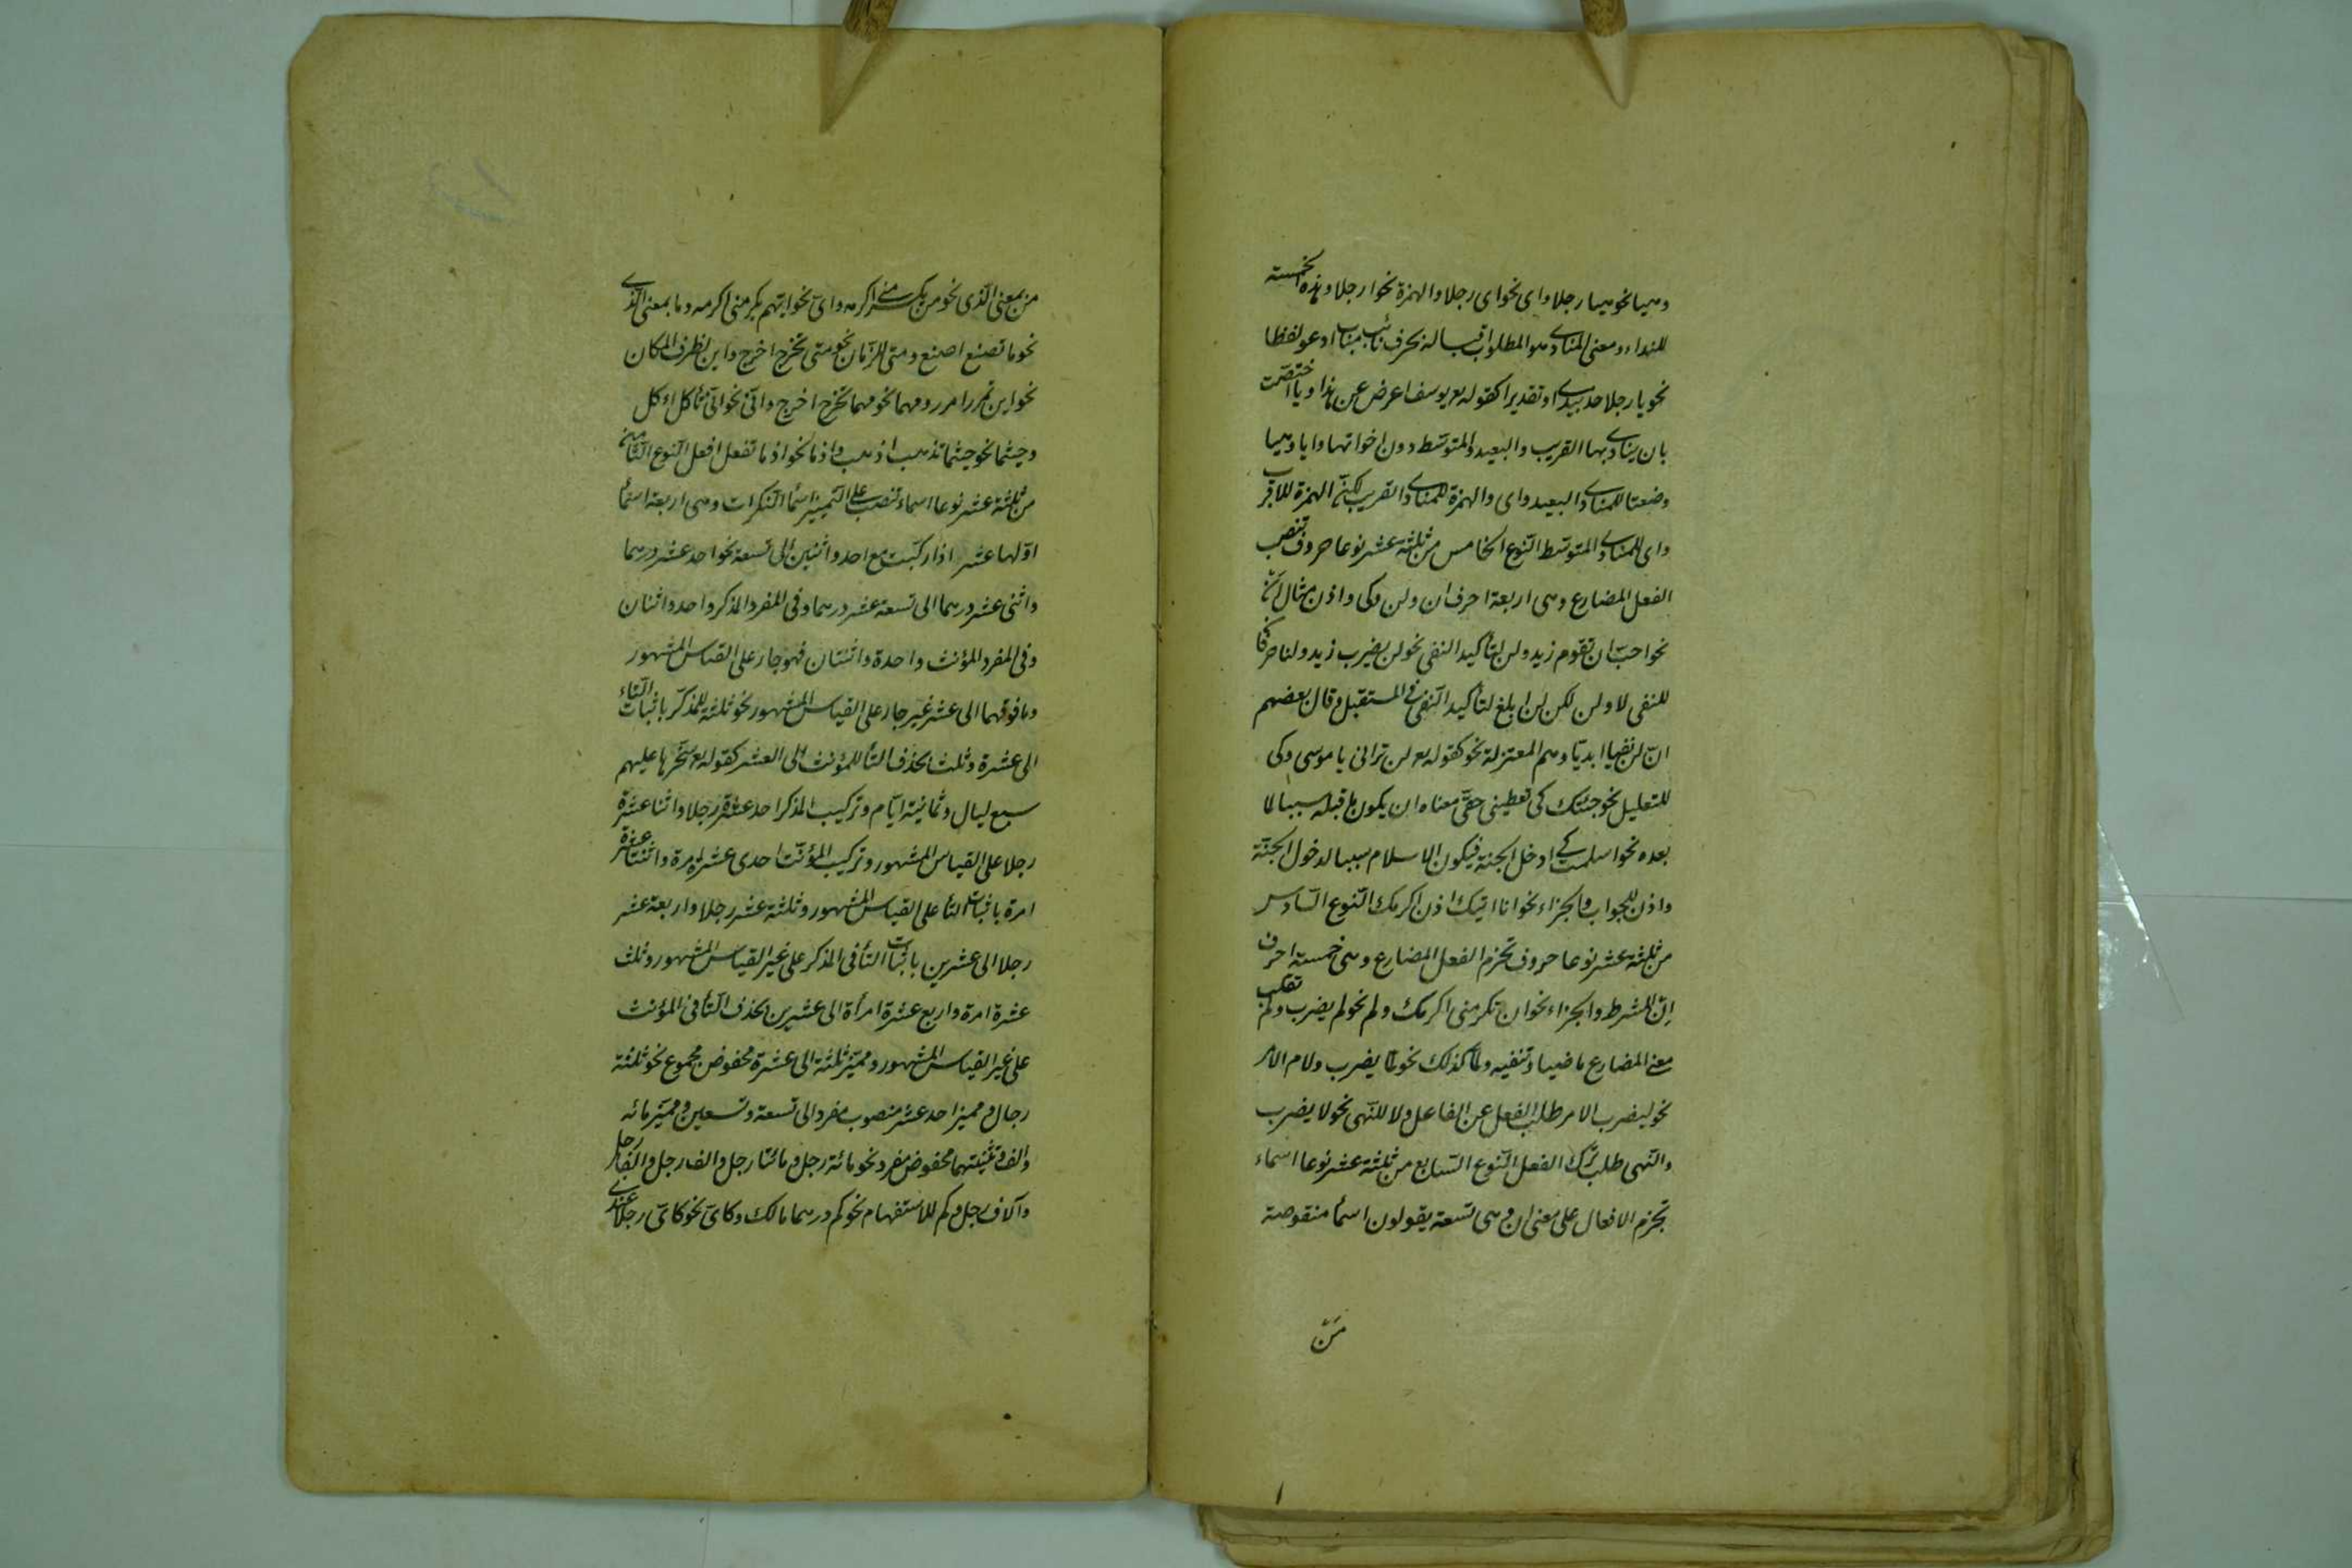 وهيا نحو هيا رجلا واى نحو اى رجلا والهمزة نحو ا رجلا وهذه الخمسة
للنداء ومعنى المنادى هو المطلوب اقباله بحرف نائب مناب ادعو لفظا
نحو يا رجلا خذ بيدى او تقديرا كقوله تع يوسف اعرض عن هذا ويا اختصت
بان ينادى بها القريب والبعيد والمتوسط دون اخواتها وايا وهيا
وضعتا للمنادى البعيد واى والهمزة للمنادى القريب لكن الهمزة للاقرب
واى للمنادى المتوسط النوع الخامس من ثلثة عشر نوعا حروف تنصب
الفعل المضارع وهى اربعة احرف ان ولن وكى واذن مثال ان
نحو احب ان تقوم زيد ولن لتأكيد النفى نحو لن يضرب زيد ولنا حرفا
للنفى لا ولن لكن لن ابلغ لتأكيد النفى فى المستقبل وقال بعضهم
ان لن نفيا ابديا وهم المعتزلة نحو كقوله تع لن ترانى يا موسى وكى
للتعليل نحو جئتك كى تعطينى حقى معناه ان يكون ما قبله سببا لما
بعده نحو اسلمت كى ادخل الجنة فيكون الاسلام سببا لدخول الجنة
واذن للجواب والجزاء نحو انا اتيك اذن اكرمك النوع السادس
من ثلثة عشر نوعا حروف تجزم الفعل المضارع وهى خمسة احرف
ان للشرط والجزاء نحو ان تكرمنى اكرمك ولم نحو لم يضرب ولم تقلب
معنى المضارع ماضيا وتنفيه ولما كذلك نحو لما يضرب ولام الامر
نحو ليضرب الامر طلب الفعل عن الفاعل ولا للنهى نحو لا يضرب
والنهى طلب ترك الفعل النوع السابع من ثلثة عشر نوعا اسماء
تجزم الافعال على معنى ان وهى تسعة يقولون اسما منقوصة
من
من بمعنى الذى نحو من يكرمنى اكرمه واى نحو ايهم يكرمنى اكرمه وما بمعنى الذى
نحو ما تصنع اصنع ومتى للزمان نحو متى تخرج اخرج واين لظرف المكان
نحو اين تمرر امرر ومهما نحو مهما تخرج اخرج وانى نحو انى تأكل اءكل
وحيثما نحو حيثما تذهب اذهب واذما نحو اذما تفعل افعل النوع الثامن
من ثلثة عشر نوعا اسماء تنصب على التمييز اسما النكرات وهى اربعة اسما
اولها عشر اذا ركبت مع احد واثنين الى تسعة نحو احد عشر درهما
واثنى عشر درهما الى تسعة عشر درهما وفى المفرد المذكر واحد واثنان
وفى المفرد المؤنث واحدة واثنتان فهو جار على القياس المشهور
وما فوقهما الى عشر غير جار على القياس المشهور نحو ثلثة للمذكر باثبات التاء
الى عشرة وثلث بحذف التأ للمؤنث الى العشر كقوله تع سخرها عليهم
سبع ليال وثمانية ايام وتركيب المذكر احد عشر رجلا واثنا عشرة
رجلا على القياس المشهور وتركيب المؤنث احدى عشر امرة واثنتا عشرة
امرة باثبات التأ على القياس المشهور وثلثة عشر رجلا واربعة عشر
رجلا الى عشرين باثبات التأ فى المذكر على غير القياس المشهور وثلث
عشرة امرة واربع عشرة امرأة الى عشرين بحذف التأ فى المؤنث
على غير القياس المشهور ومميز ثلثة الى عشرة مخفوض مجموع نحو ثلثة
رجال ومميز احد عشر منصوب مفرد الى تسعة وتسعين ومميز مائه
والف وتثنيتهما مخفوض مفرد نحو مائة رجل ومائتا رجل والف رجل والفا رجل
وآلاف رجل وكم للاستفهام نحو كم درهما مالك وكاى نحو كاى رجلا عندى